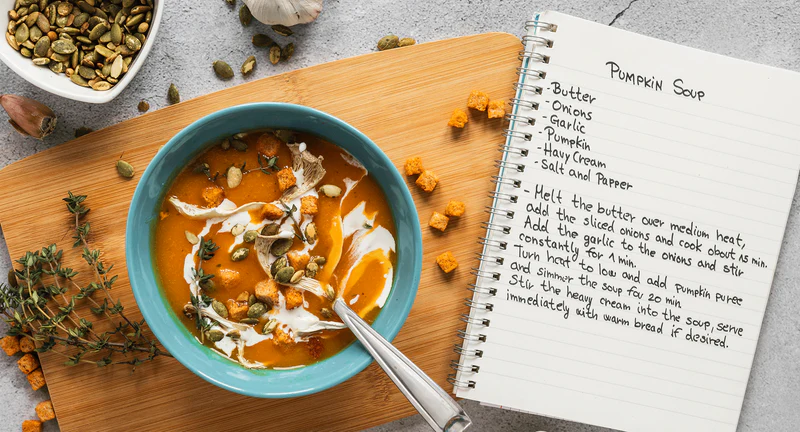 Pumpkin Soup
-Butter
-Onions
-Garlic
-Pumkin
-Havy Cream
-Salt and Papper
- Melt the butter over medium heat,
add the sliced onions and cook obout 15 min.
Add the garlic to the onions and stir
constantly for 1 min.
Turn heat to low and add pumpkin puree
and simmer the soup for 20 min
Stir the heavy cream into the soup, serve
immediately with warm bread if desired.